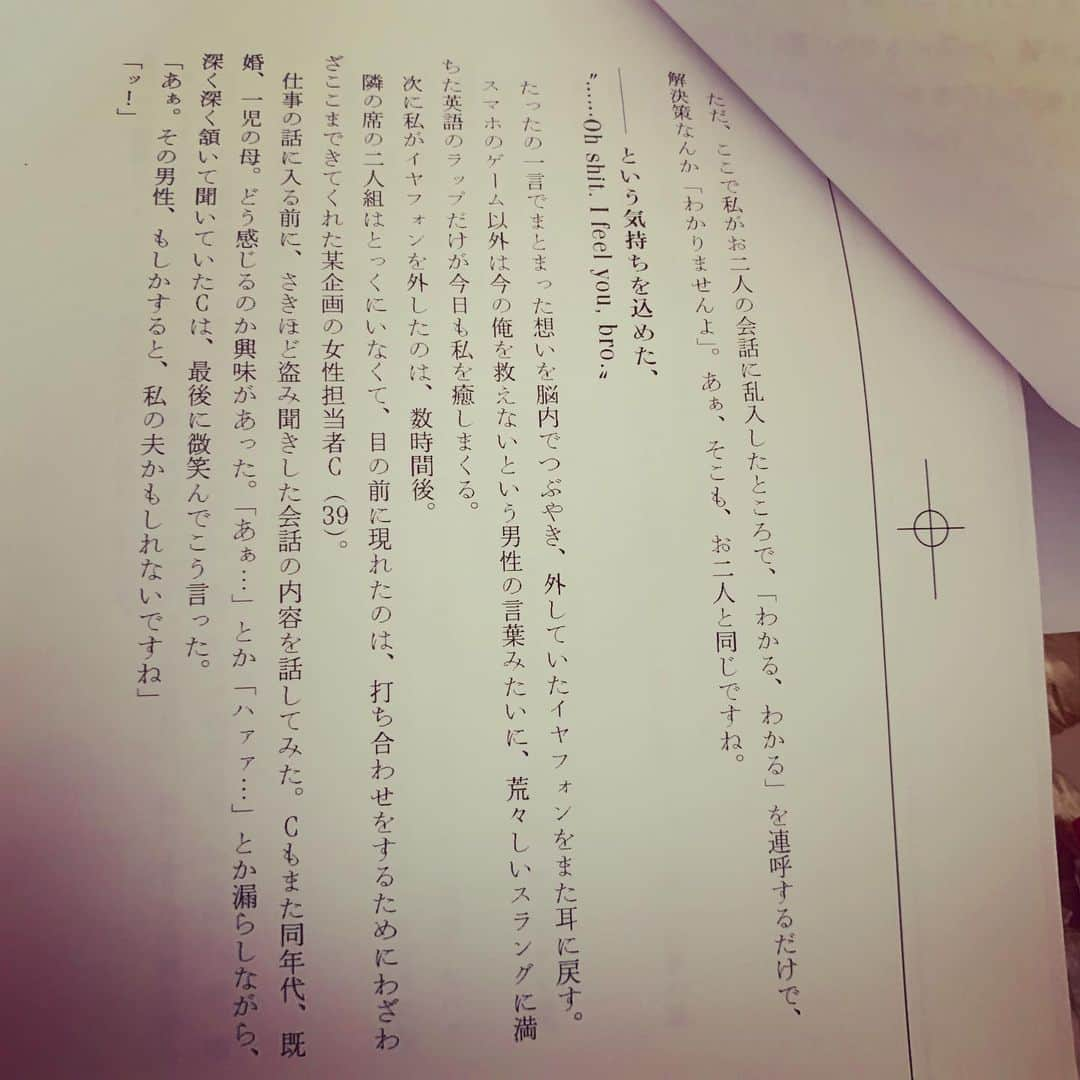 ただ、ここで私がお二人の会話に乱入したところで、「わかる、わかる」を連呼するだけで、
解決策なんか「わかりませんよ」。あぁ、そこも、お二人と同じですね。
――という気持ちを込めた、
〝……Oh shit. I feel you, bro.〟
たったの一言でまとまった想いを脳内でつぶやき、外していたイヤフォンをまた耳に戻す。
スマホのゲーム以外は今の俺を救えないという男性の言葉みたいに、荒々しいスラングに満
ちた英語のラップだけが今日も私を癒しまくる。
次に私がイヤフォンを外したのは、数時間後。
隣の席の二人組はとっくにいなくて、目の前に現れたのは、打ち合わせをするためにわざわ
ざここまできてくれた某企画の女性担当者C（39）。
仕事の話に入る前に、さきほど盗み聞きした会話の内容を話してみた。Cもまた同年代、既
婚、一児の母。どう感じるのか興味があった。「あぁ…」とか「ハァァ…」とか漏らしながら、
深く深く頷いて聞いていたCは、最後に微笑んでこう言った。
「あぁ。その男性、もしかすると、私の夫かもしれないですね」
「ッ！」